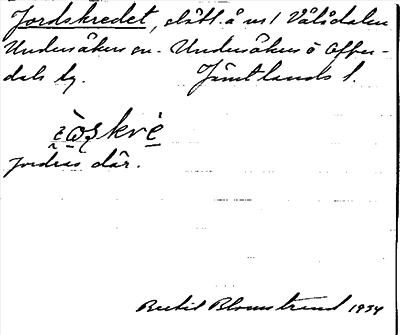 Jordskredet, slått å nr 1 Vålådalen
Undersåkers sn. Undersåkers o Offer-
dals tg. Jämtlands l.
jordras där.
Bertil Blomstrand 1934